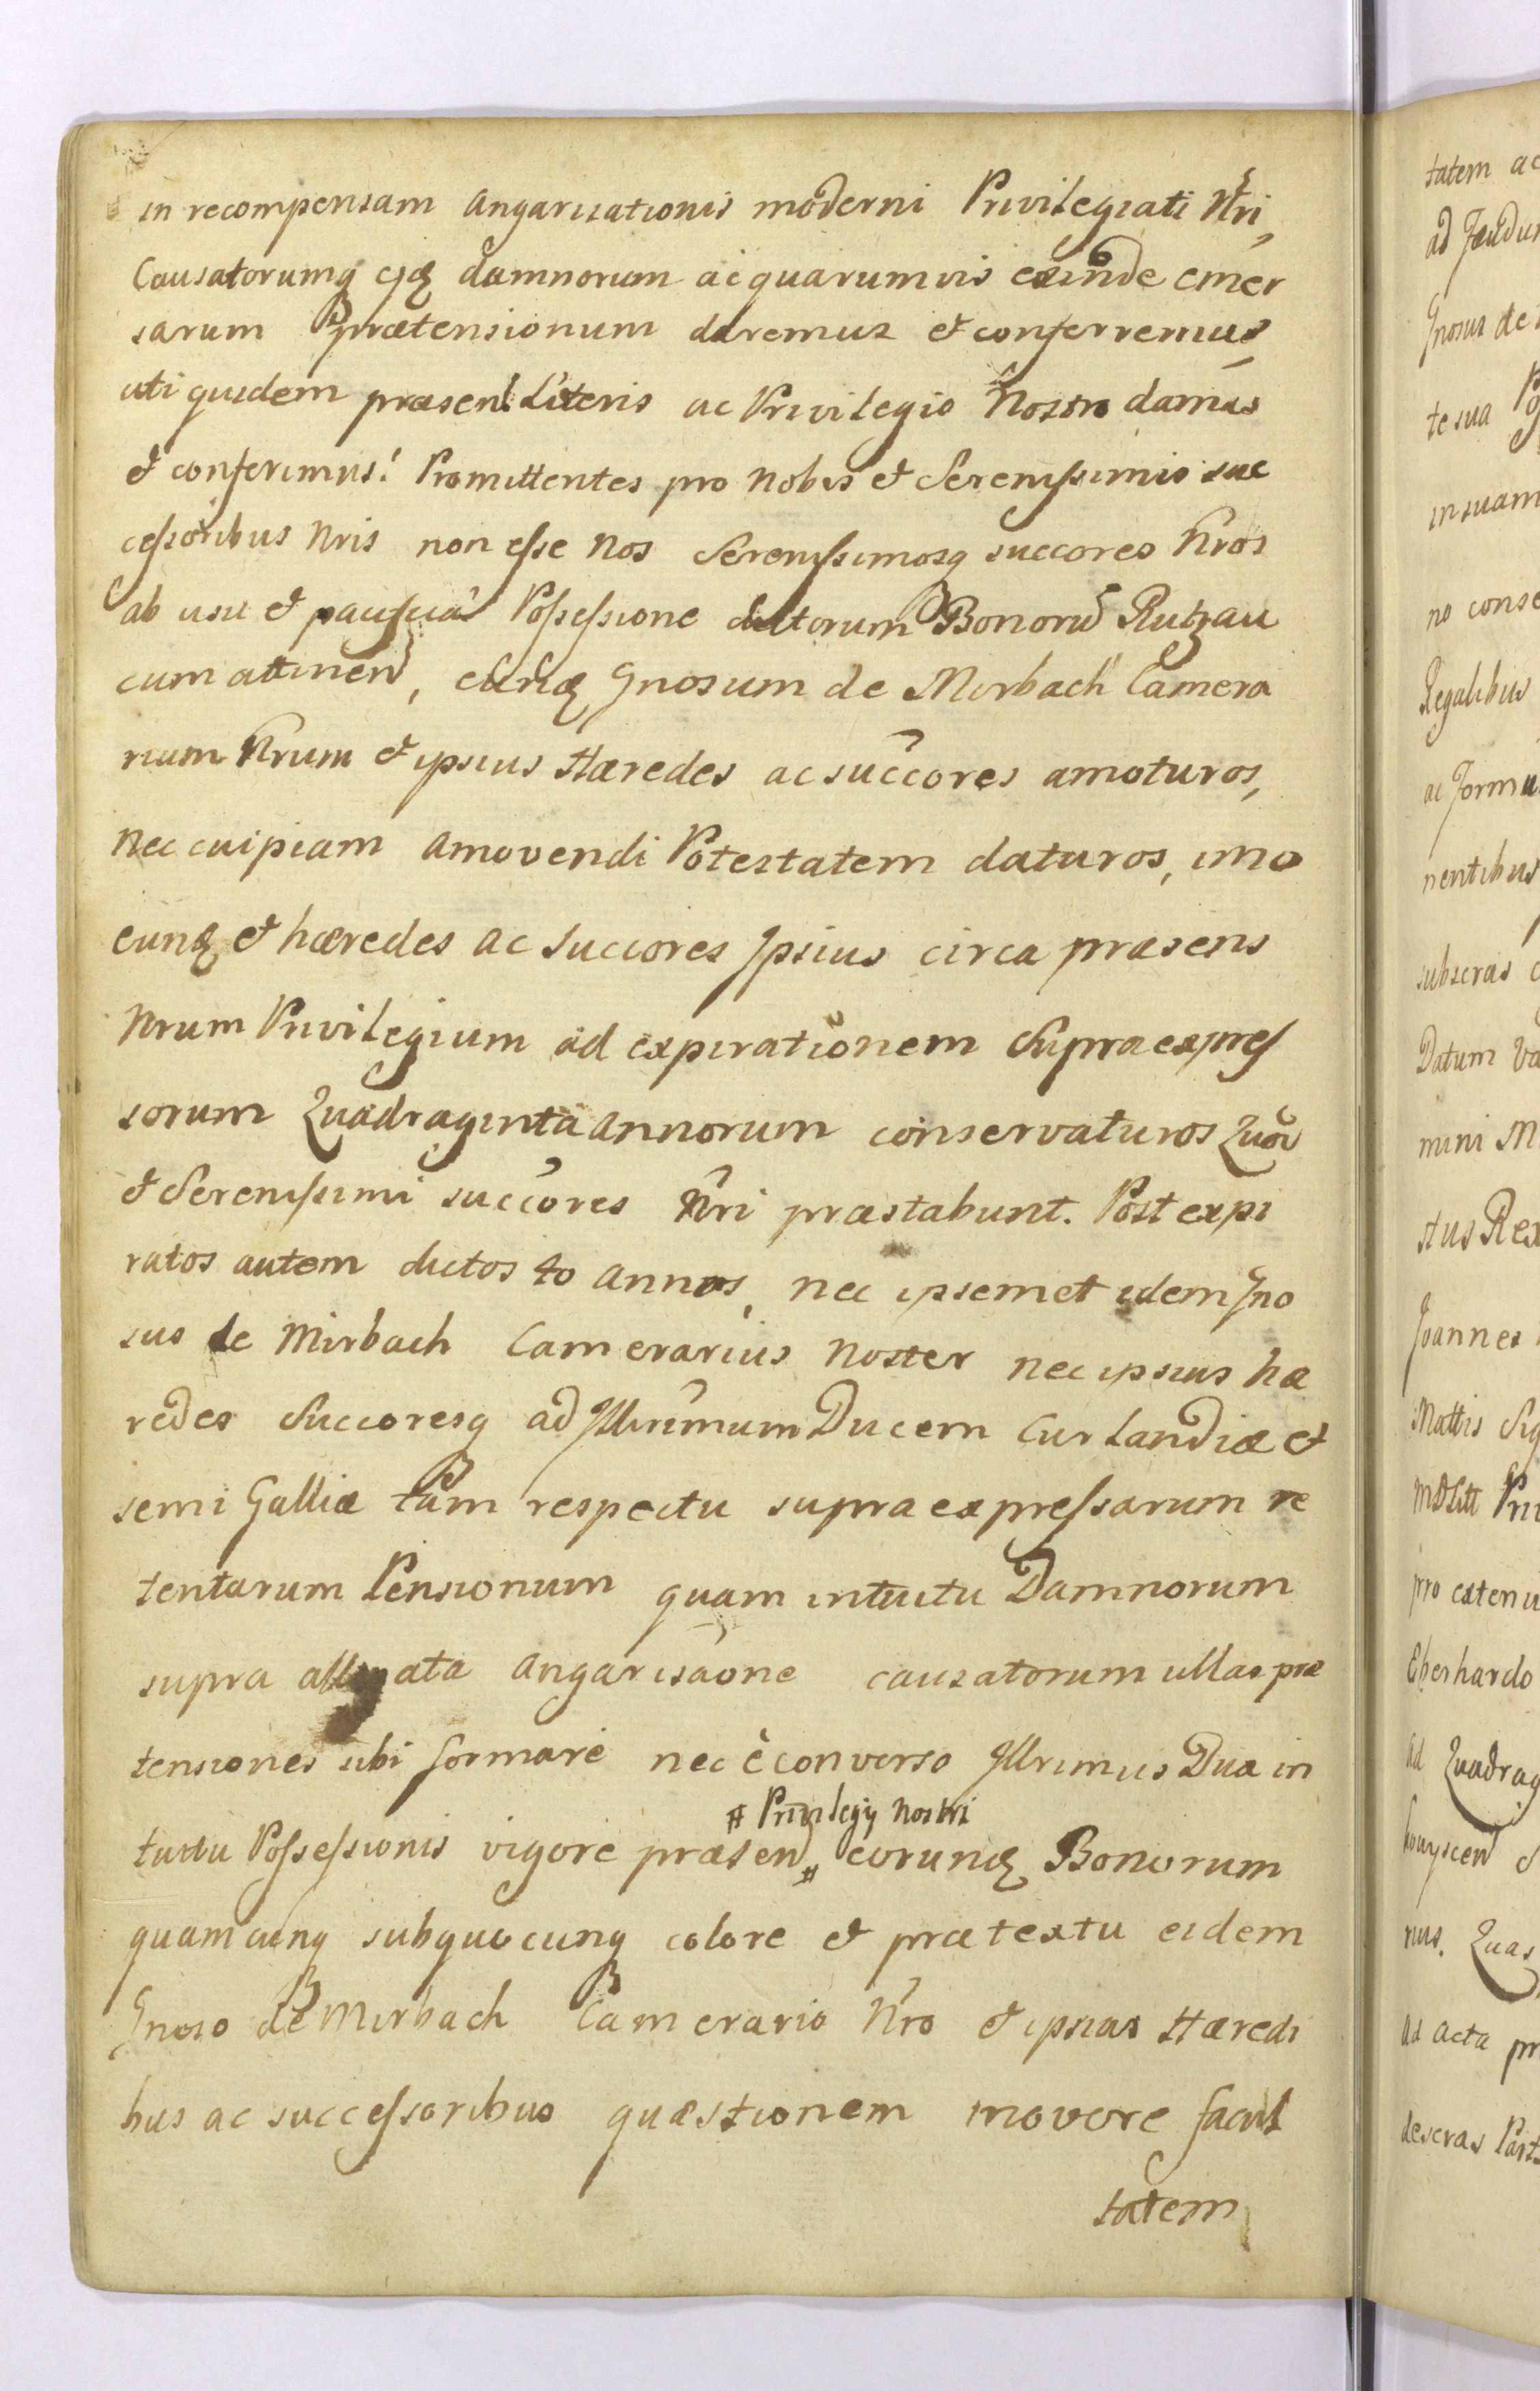 in recompensam angarisationis moderni Privilegiati Nri,
Causatorumq ejq damnorum ac quarumvis exinde emer
sarum Prætensionum daremus et conferremus
uti quidem præsen. Literis ac Privilegio Nostro damus
et conferimus! Promittentes pro Nobis et Serenissimis suc
cessoribus Nris non esse Nos Serenissimosq succores Nros
ab usu et pacifica Possessione dictorum Bonorū Rutzau
cum attinen, eundq Gnosum de Mirbach Camera
rium Nrum et ipsius Hæredes ac succores amoturos,
nec cuipiam amovendi Potestatem daturos, imo
eunq et hæredes ac succores Ipsius circa præsens
Nrum Privilegium ad expirationem supra expres
sorum Quadraginta annorum conservaturos Quod
et Serenissimi succores Nri præstabunt. Post expi
ratos autem dictos 40 annos, nec ipsemet idem Gno
sus de Mirbach Camerarius Noster nec ipsius hæ
redes Succoresq ad Illrimum Ducem Curlandiæ et
semi Galliæ tam respectu supra expressarum re
tentarum Pensionum quam intuitu Damnorum
supra allegata angarisãone causatorum ullas præ
tensiones sibi formare nec è converso Illrimus Dux in
# Privilegij Nostri
tuitu Possessionis vigore præsen # eorunq Bonorum
quamcunq subquocunq colore et prætextu eidem
Gnoso de Mirbach Camerario Nro et ipsius Hæredi
bus ac successoribus quæstionem movere facul
tatem
tatem ac
ad Feudum
Gnosus de
te sua
in suam
no conse
Regalibus
ac Formu
nentibus
subscras
Datum Va
mini M
stus Rex
Joannes
Mattis Sig
Pri
pro exten
Eberhardo
ad Quadrag
rius. Quas
ad acta pr
descras Part